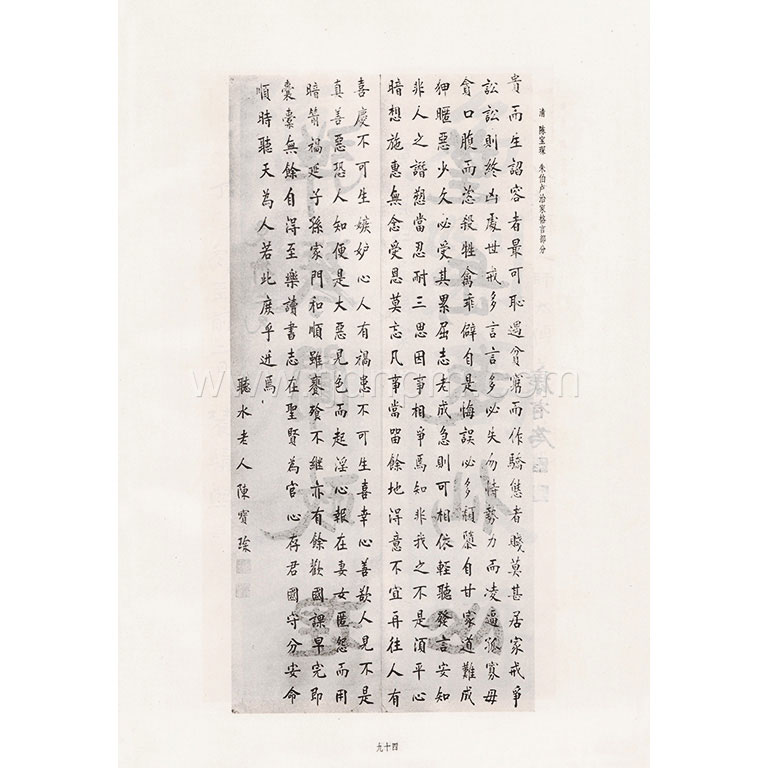 清 陈宝琛 朱伯卢治家格言部分
貴而生諂容者最可恥遇貧窮而作驕態者賤莫甚居家戒爭
訟訟則終凶處世戒多言言多必失勿恃勢力而凌逼孤寡毋
貪口腹而恣殺牲禽乖僻自是悔誤必多頹墮自甘家道難成
狎暱惡少久必受其累屈志老成急則可相依輕聽發言安知
非人之譖愬當忍耐三思因事相爭焉知非我之不是須平心
暗想施惠無念受恩莫忘凡事當留餘地得意不宜再往人有
喜慶不可生嫉妒心人有禍患不可生喜幸心善欲人見不是
真善惡恐人知便是大惡見色而起淫心報在妻女匿怨而用
暗箭禍延子孫家門和順雖饔飧不繼亦有餘歡國課早完即
囊橐無餘自得至樂讀書志在聖賢為官心存君國守分安命
順時聽天為人若此庶乎近焉
聽水老人陳寶琛
九十四